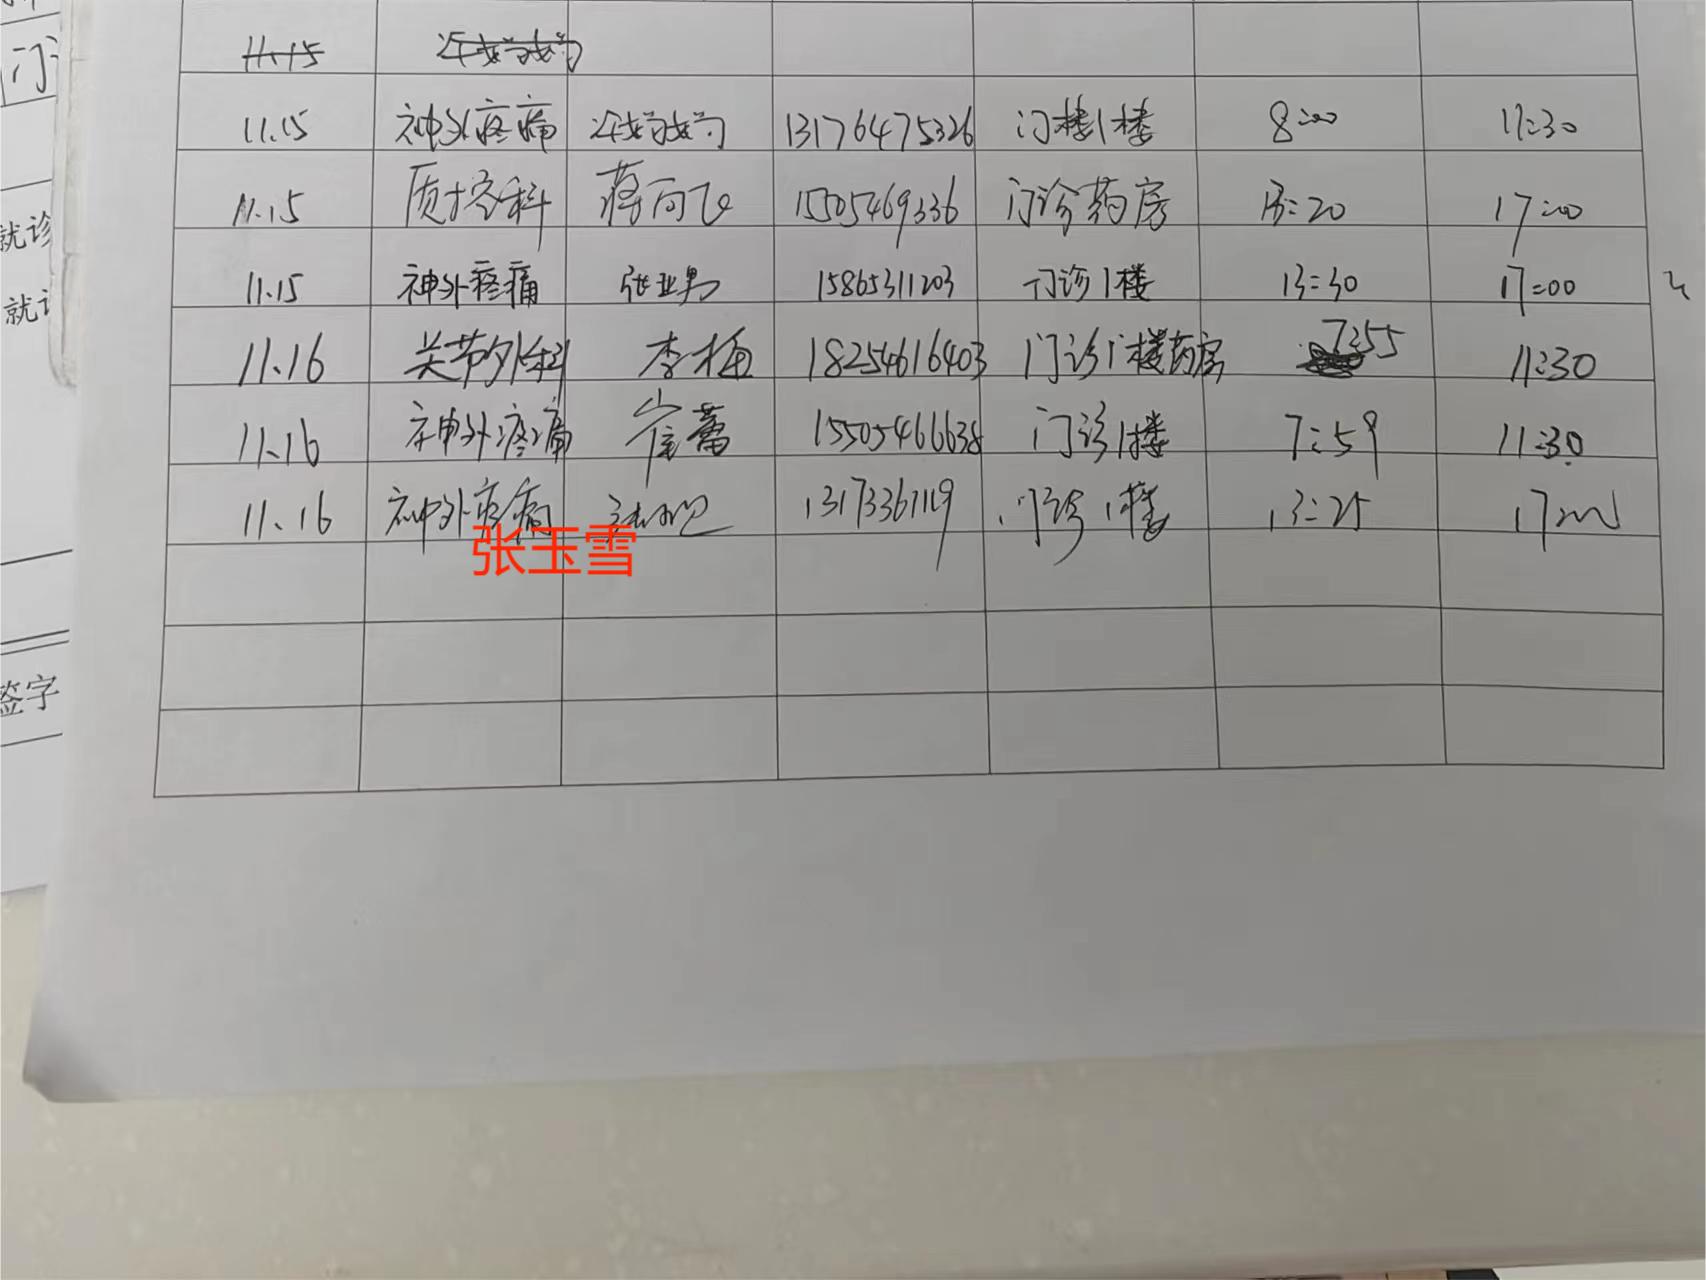 门
11.15
11.15 神外疼痛 13176475326 门楼1楼 8:00 11:30
11.15 质控科 蒋向飞 15505469336 门诊药房 13:20 17:00
就诊
11.15 神外疼痛 张亚男 15865311203 门诊1楼 13:30 17:00
就
11.16 关节外科 李梅 18254616403 门诊1楼药房 7:55 11:30
11.16 神外疼痛 崔蕾 15505466638 门诊1楼 7:59 11:30
11.16 神外疼痛 13173361119 门诊1楼 13:25 17:00
张玉雪
签字